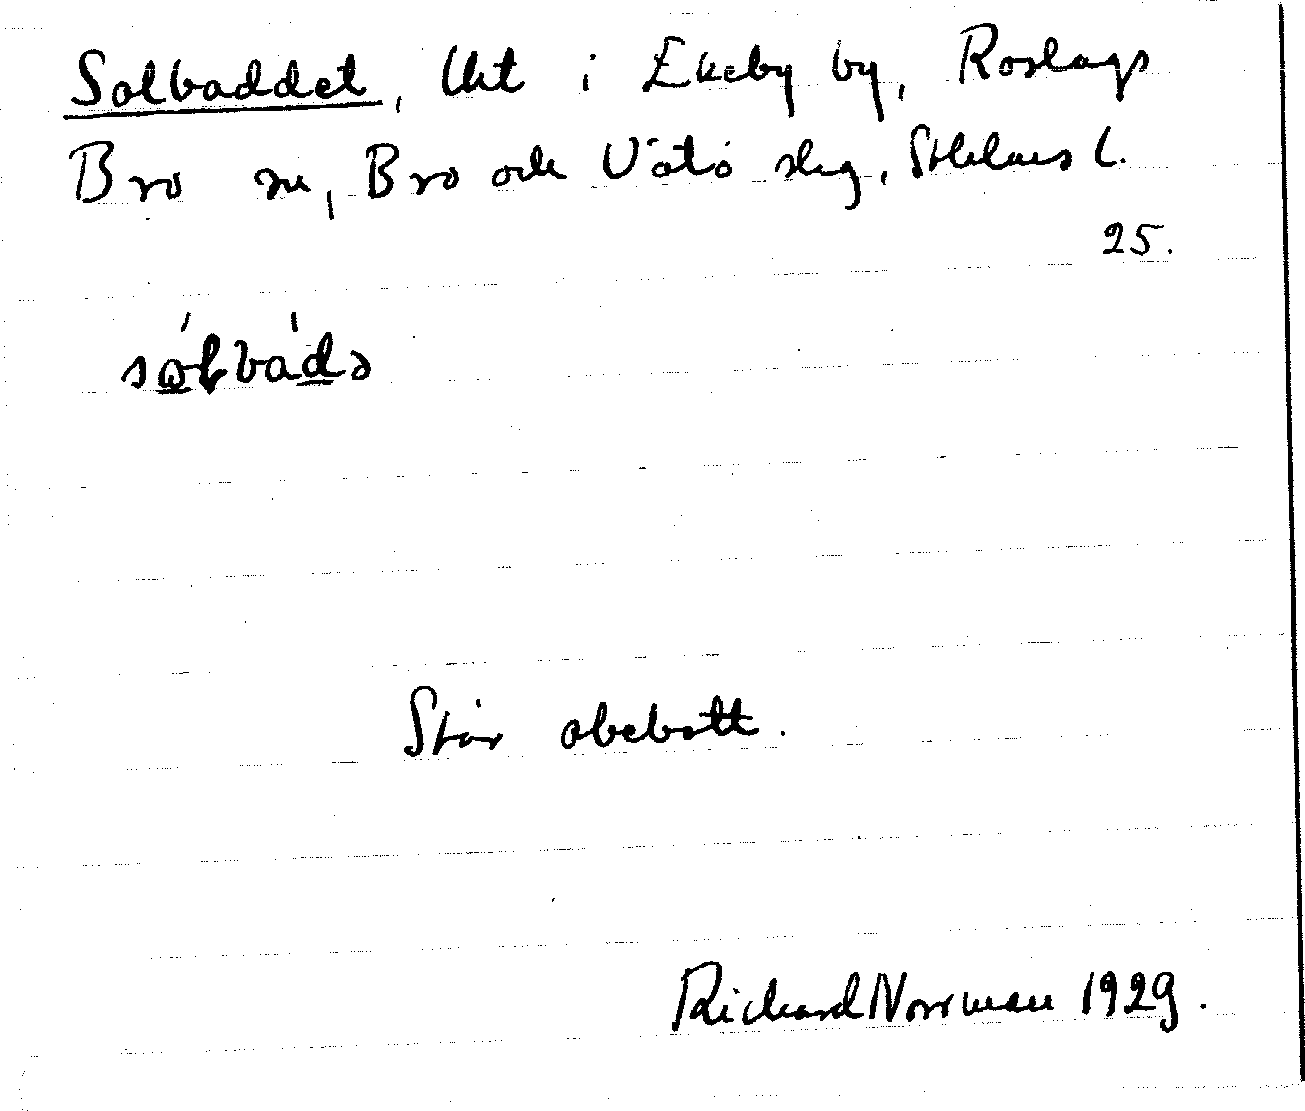 Solbaddet, lht i Ekeby by, Roslags
Bro sn, Bro och Vätö skg, Sthlms l.
25.
só̱lbàd̲ə
Står obebott.
Richard Norrman 1929.